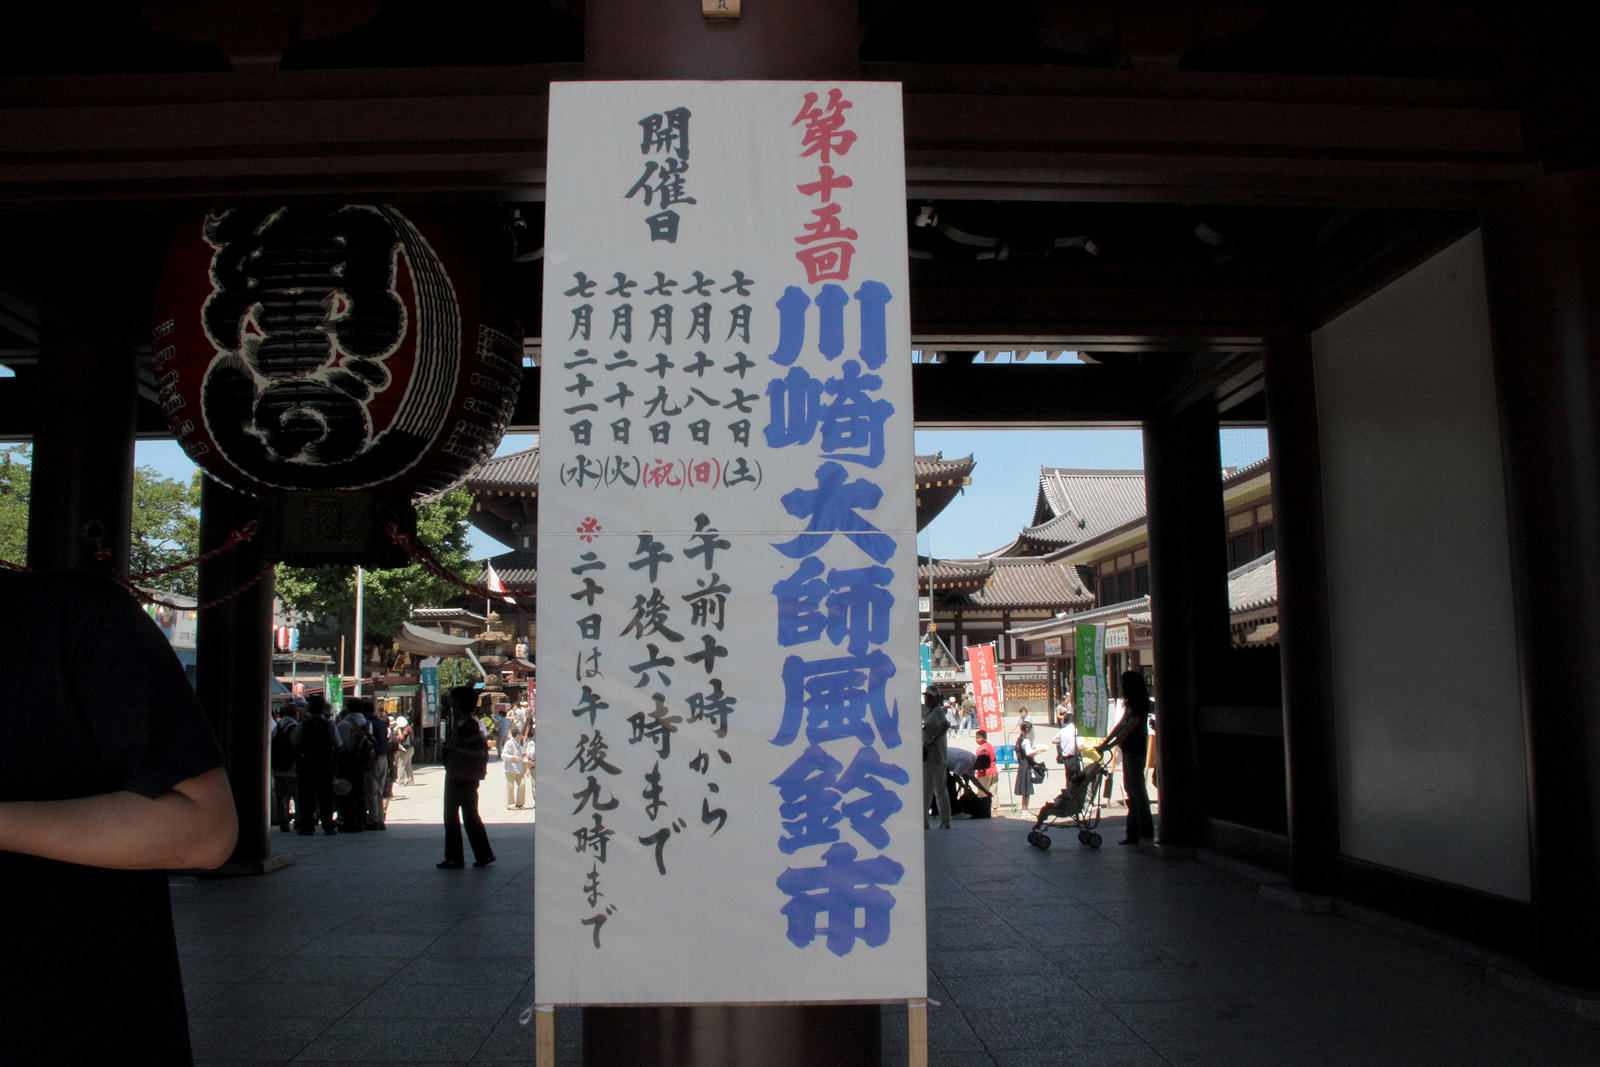 第十五回
川崎大師風鈴市
開催日
七月十七日(土)
七月十八日(日)
七月十九日(祝)
七月二十日(火)
七月二十一日(水)
午前十時から
午後六時まで
※二十日は午後九時まで
川崎大師
風鈴市